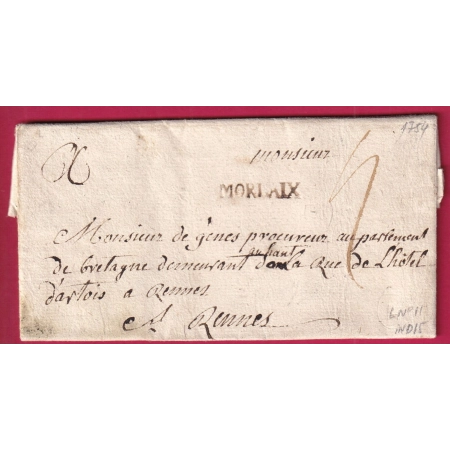 1784
monsieur
MORLAIX
Monsieur de gènes procureur au parlement
de bretagne demeurant au haut de la Rue de L'hôtel
d'artois a Rennes
A Rennes
L N° 11
IND 15